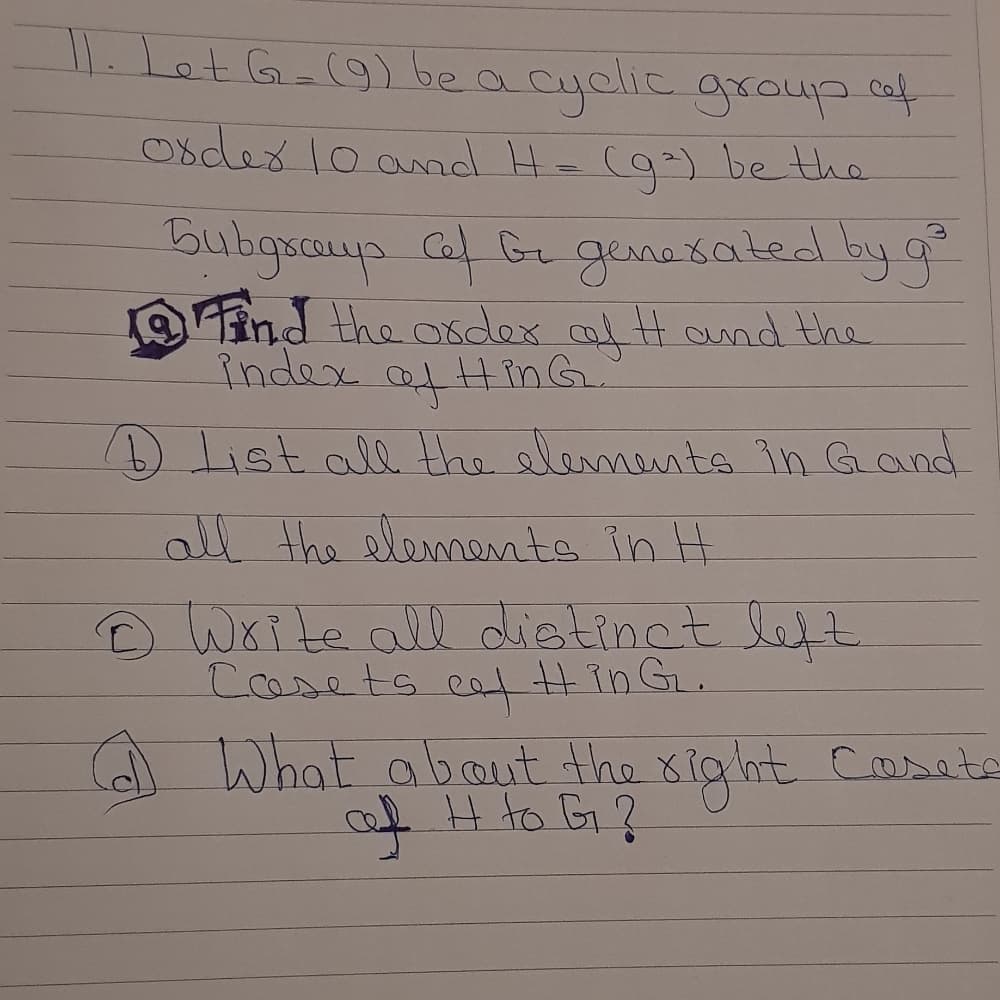 11. Let G = (g) be a cyclic group of
order 10 and H = (g²) be the
Subgroup of G generated by g³
ⓐ Find the order of H and the
index of H in G.
ⓑ List all the elements in G and
all the elements in H
ⓒ Write all distinct left
Cosets of H in G.
ⓓ What about the right Cosets
of H to G?